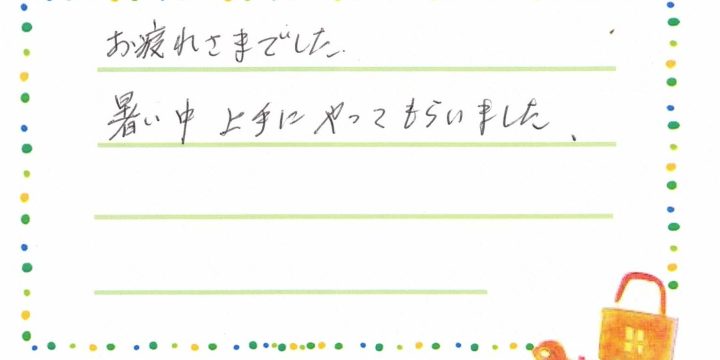 お疲れさまでした.
暑い中 上手にやってもらいました、